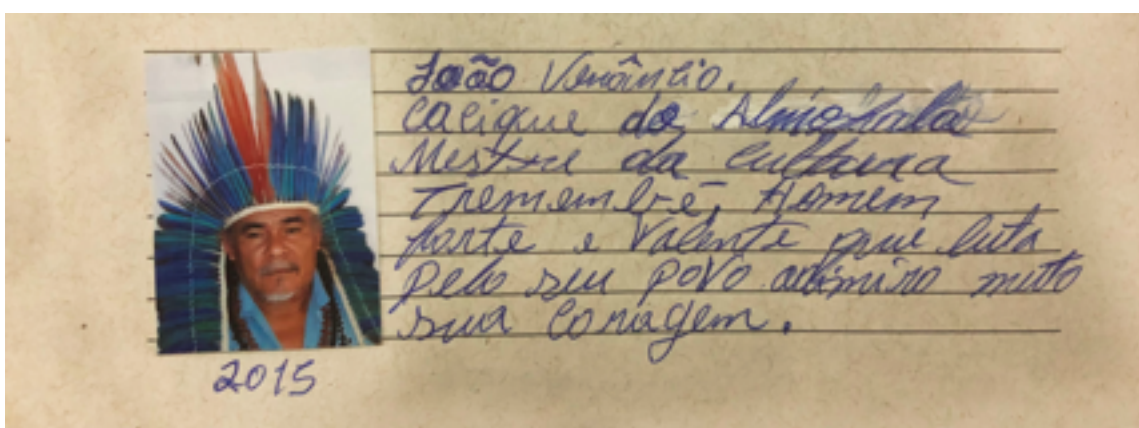 João Venâncio.
Cacique do Almofala
Mestre da cultura
Tremembé, Homem
forte e valente que luta
pelo seu povo admiro muto
sua coragem.
2015